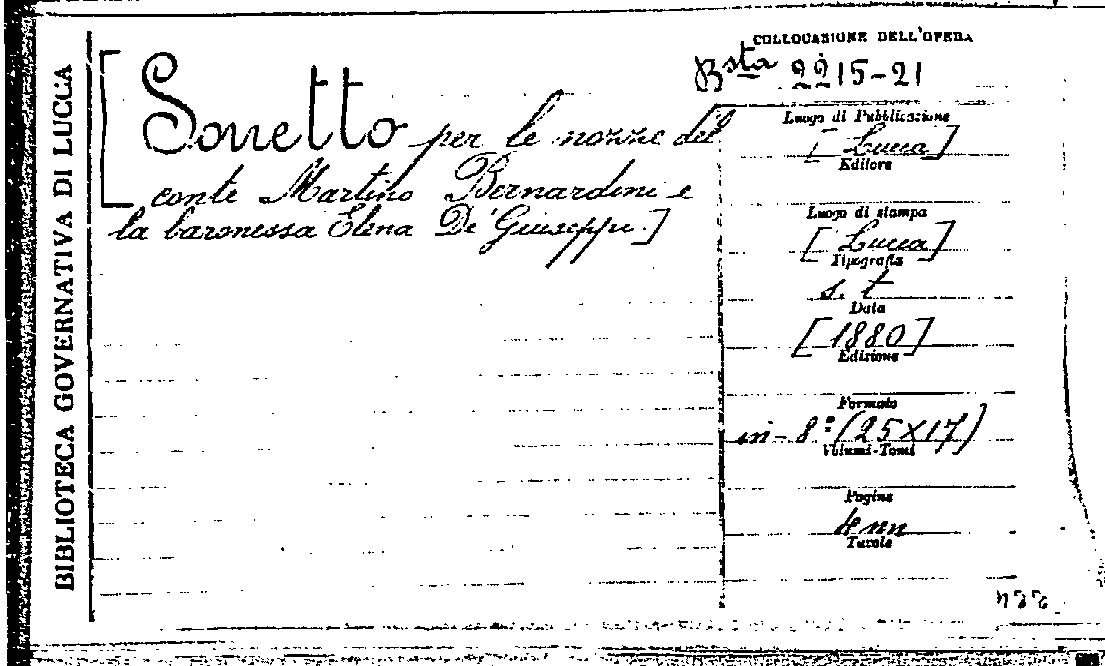 BIBLIOTECA GOVERNATIVA DI LUCCA
[Sonetto per le nozze del
conte Martino Bernardini e
la baronessa Elena De' Giuseppe.]
COLLOCAZIONE DELL'OPERA
Bsta 2215-21
Luogo di Pubblicazione
[Lucca]
Editore
Luogo di stampa
[Lucca]
Tipografia
s. t
Data
[1880]
Edizione
Formato
in-8° (25X17)
Volumi-Tomi
Pagine
4 nn
Tavole